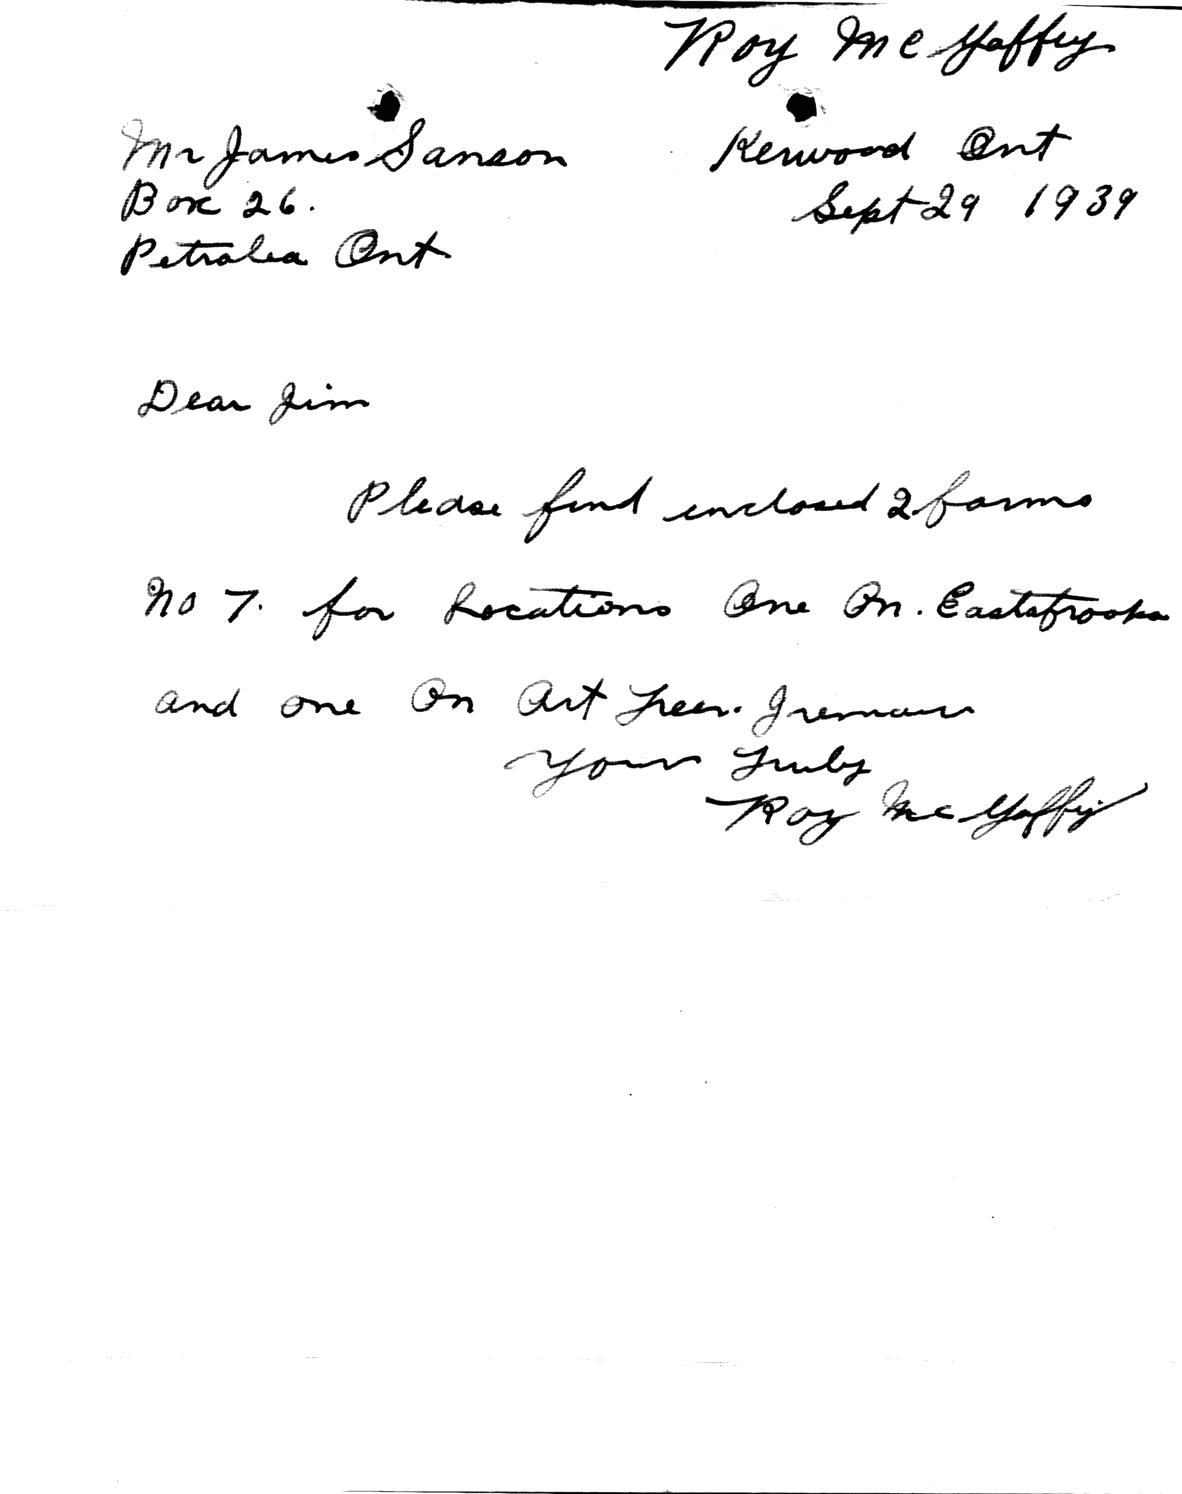 Roy McGaffey
Mr James Sanson
Kerwood Ont
Box 26.
Sept 29 1939
Petrolea Ont
Dear Jim
Please find enclosed 2 forms
No 7. for Locations One On. Eastabrooks
and one On Art
Yours Truly
Roy McGaffey